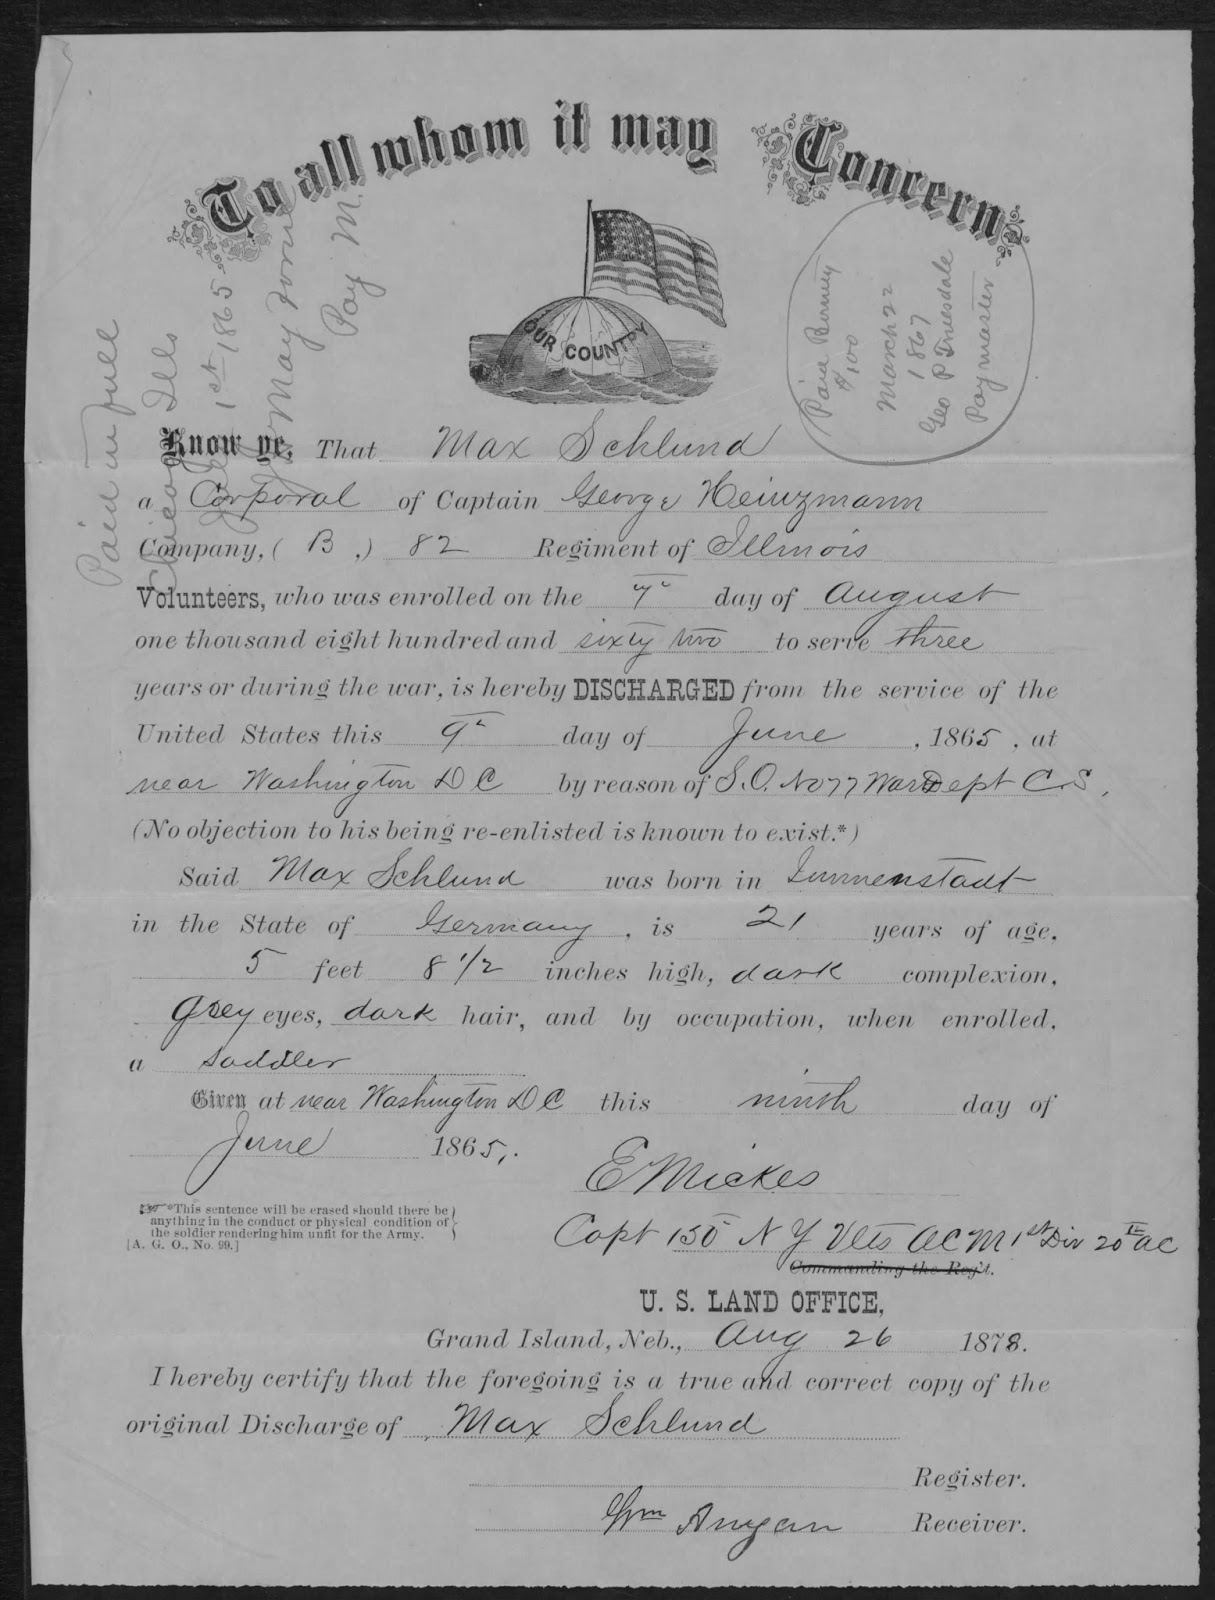 To all whom it may Concern
OUR COUNTRY
Paid in full
Chicago Ills
1st 1865
May
Pay M.
Paid Bounty
$100
March 22
1867
Geo P Truesdale
Paymaster
Know ye, That Max Schlund
a Corporal of Captain George Heinzmann
Company, ( B ,) 82 Regiment of Illinois
Volunteers, who was enrolled on the 7" day of August
one thousand eight hundred and sixty two to serve three
years or during the war, is hereby DISCHARGED from the service of the
United States this 9" day of June , 1865 , at
near Washington D C by reason of S.O. No 77 War Dept C.S.
(No objection to his being re-enlisted is known to exist.*)
Said Max Schlund was born in Immenstadt
in the State of Germany , is 21 years of age,
5 feet 8 1/2 inches high, dark complexion,
grey eyes, dark hair, and by occupation, when enrolled,
a Saddler
Given at near Washington D C this ninth day of
June 1865,.
E Mickes
Capt 150 N Y Vols A C M 1st Div 20th AC
Commanding the Reg't.
*This sentence will be erased should there be
anything in the conduct or physical condition of
the soldier rendering him unfit for the Army.
[A. G. O., No. 99.]
U. S. LAND OFFICE,
Grand Island, Neb., Aug 26 1878.
I hereby certify that the foregoing is a true and correct copy of the
original Discharge of Max Schlund
Register.
Wm Anyan Receiver.